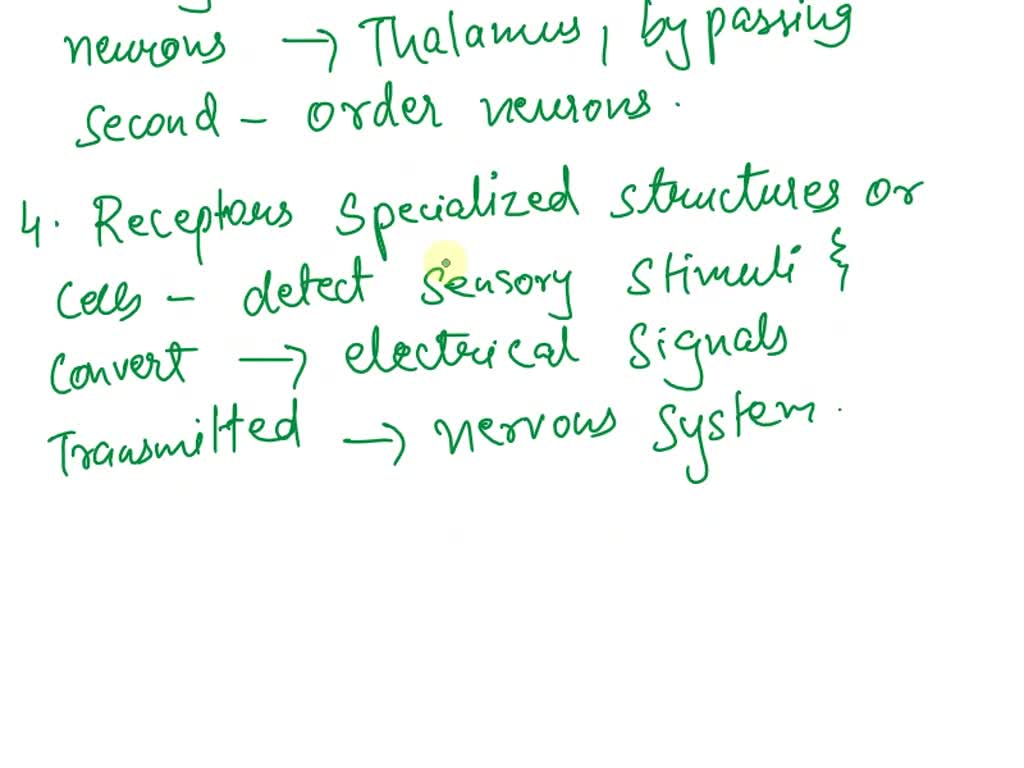 neurons → Thalamus, by passing
Second - order neurons.
4. Receptors Specialized structures or
Cells - detect sensory stimuli &
Convert → electrical signals
Transmitted → nervous system.